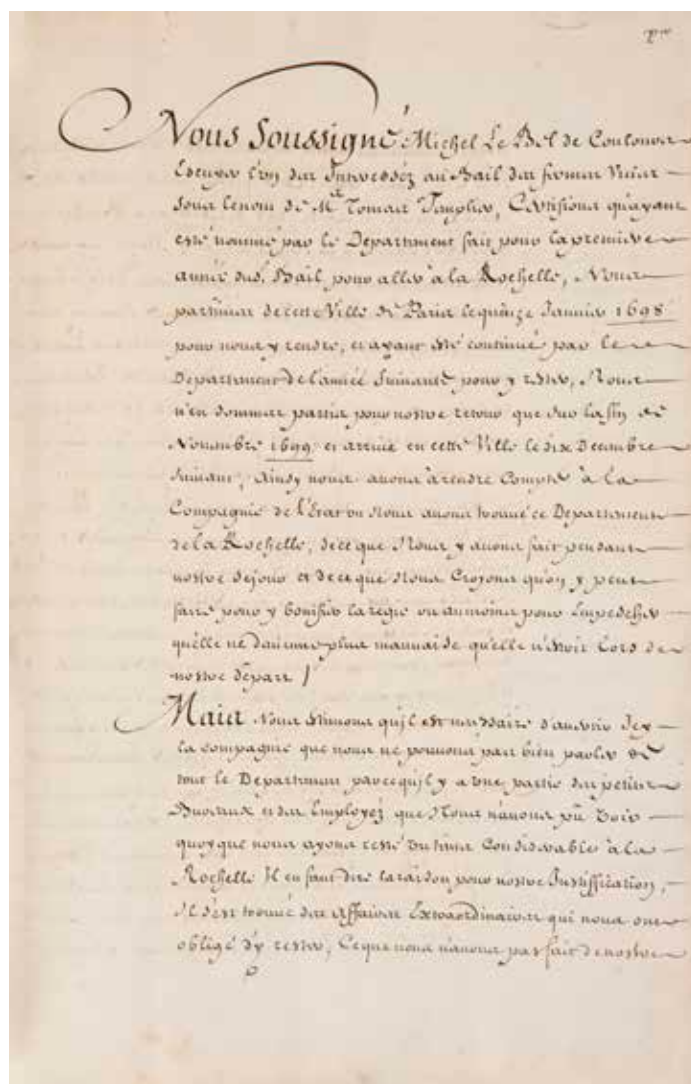 Nous Soussigné Michel Le Bel de Coulonvers
Escuyer l'un des Interessez au Bail des fermes Unies
sous le nom de Mᵉ Tomas Templier, Certifions qu'ayant
esté nommé par le Departement fait pour la premiere
année dud. Bail pour aller à la Rochelle, Nous
partimes de cette Ville de Paris le quinze Janvier 1698
pour nous y rendre, et ayant esté continué par le
Departement de l'année suivante pour y rester, Nous
n'en sommes partis pour nostre retour que sur la fin de
Novembre 1699 et arrivé en cette Ville le dix Decembre
suivant, Ainsy nous avons à rendre Compte à la
Compagnie de l'Etat ou Nous avons trouvé ce Departement
de la Rochelle, de ce que Nous y avons fait pendant
nostre sejour et de ce que Nous Croyons qu'on y peut
faire pour y bonifier la regie ou au moins pour Empescher
qu'elle ne devienne plus mauvaise qu'elle n'estoit Lors de
nostre départ /
Mais Nous estimons qu'il est necessaire d'avertir Icy
la compagnie que nous ne pouvons pas bien parler de
tout le Departement parce qu'il y a une partie des petits
Bureaux et des Employez que Nous n'avons pû voir
quoyque nous ayons resté un tems Considerable à la
Rochelle Il en faut dire la raison pour nostre Justiffication,
Il s'est trouvé des Affaires Extraordinaires qui nous ont
obligé d'y rester, Ce que nous n'avons pas fait de nostre